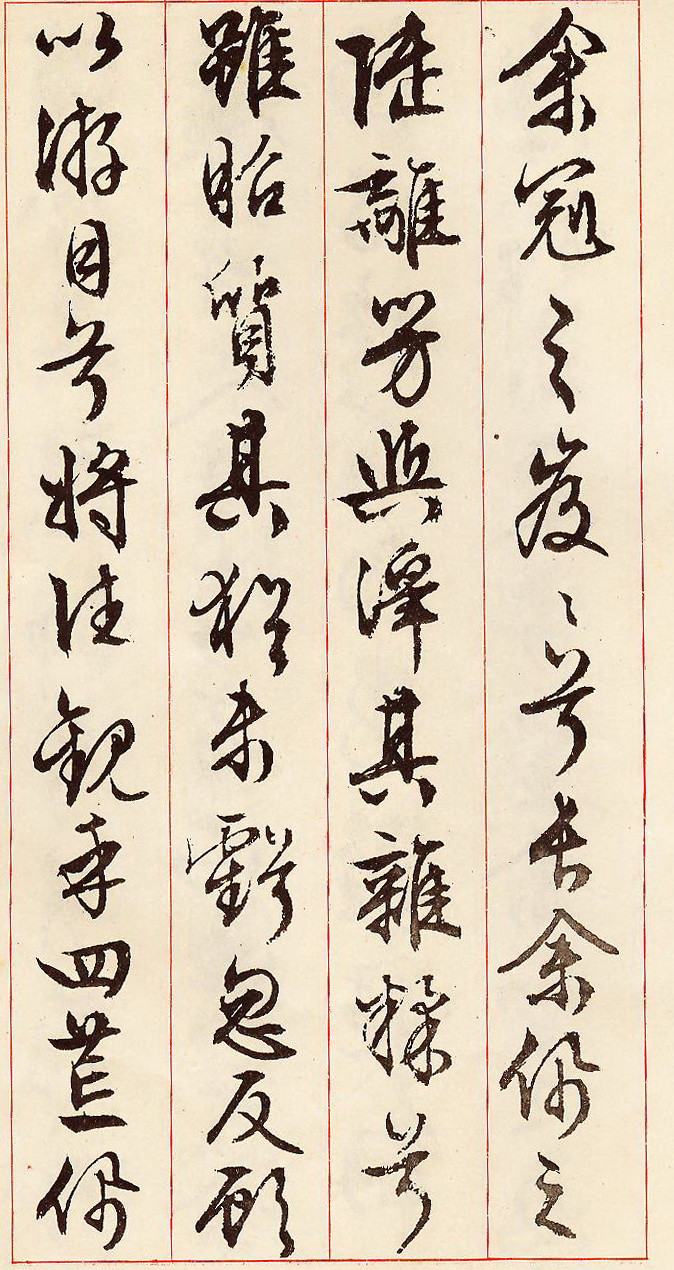 余冠之岌〻兮長余佩之
陸離芳與澤其雜糅兮
雖昭質其猶未虧忽反顧
以游目兮將往觀乎四荒佩